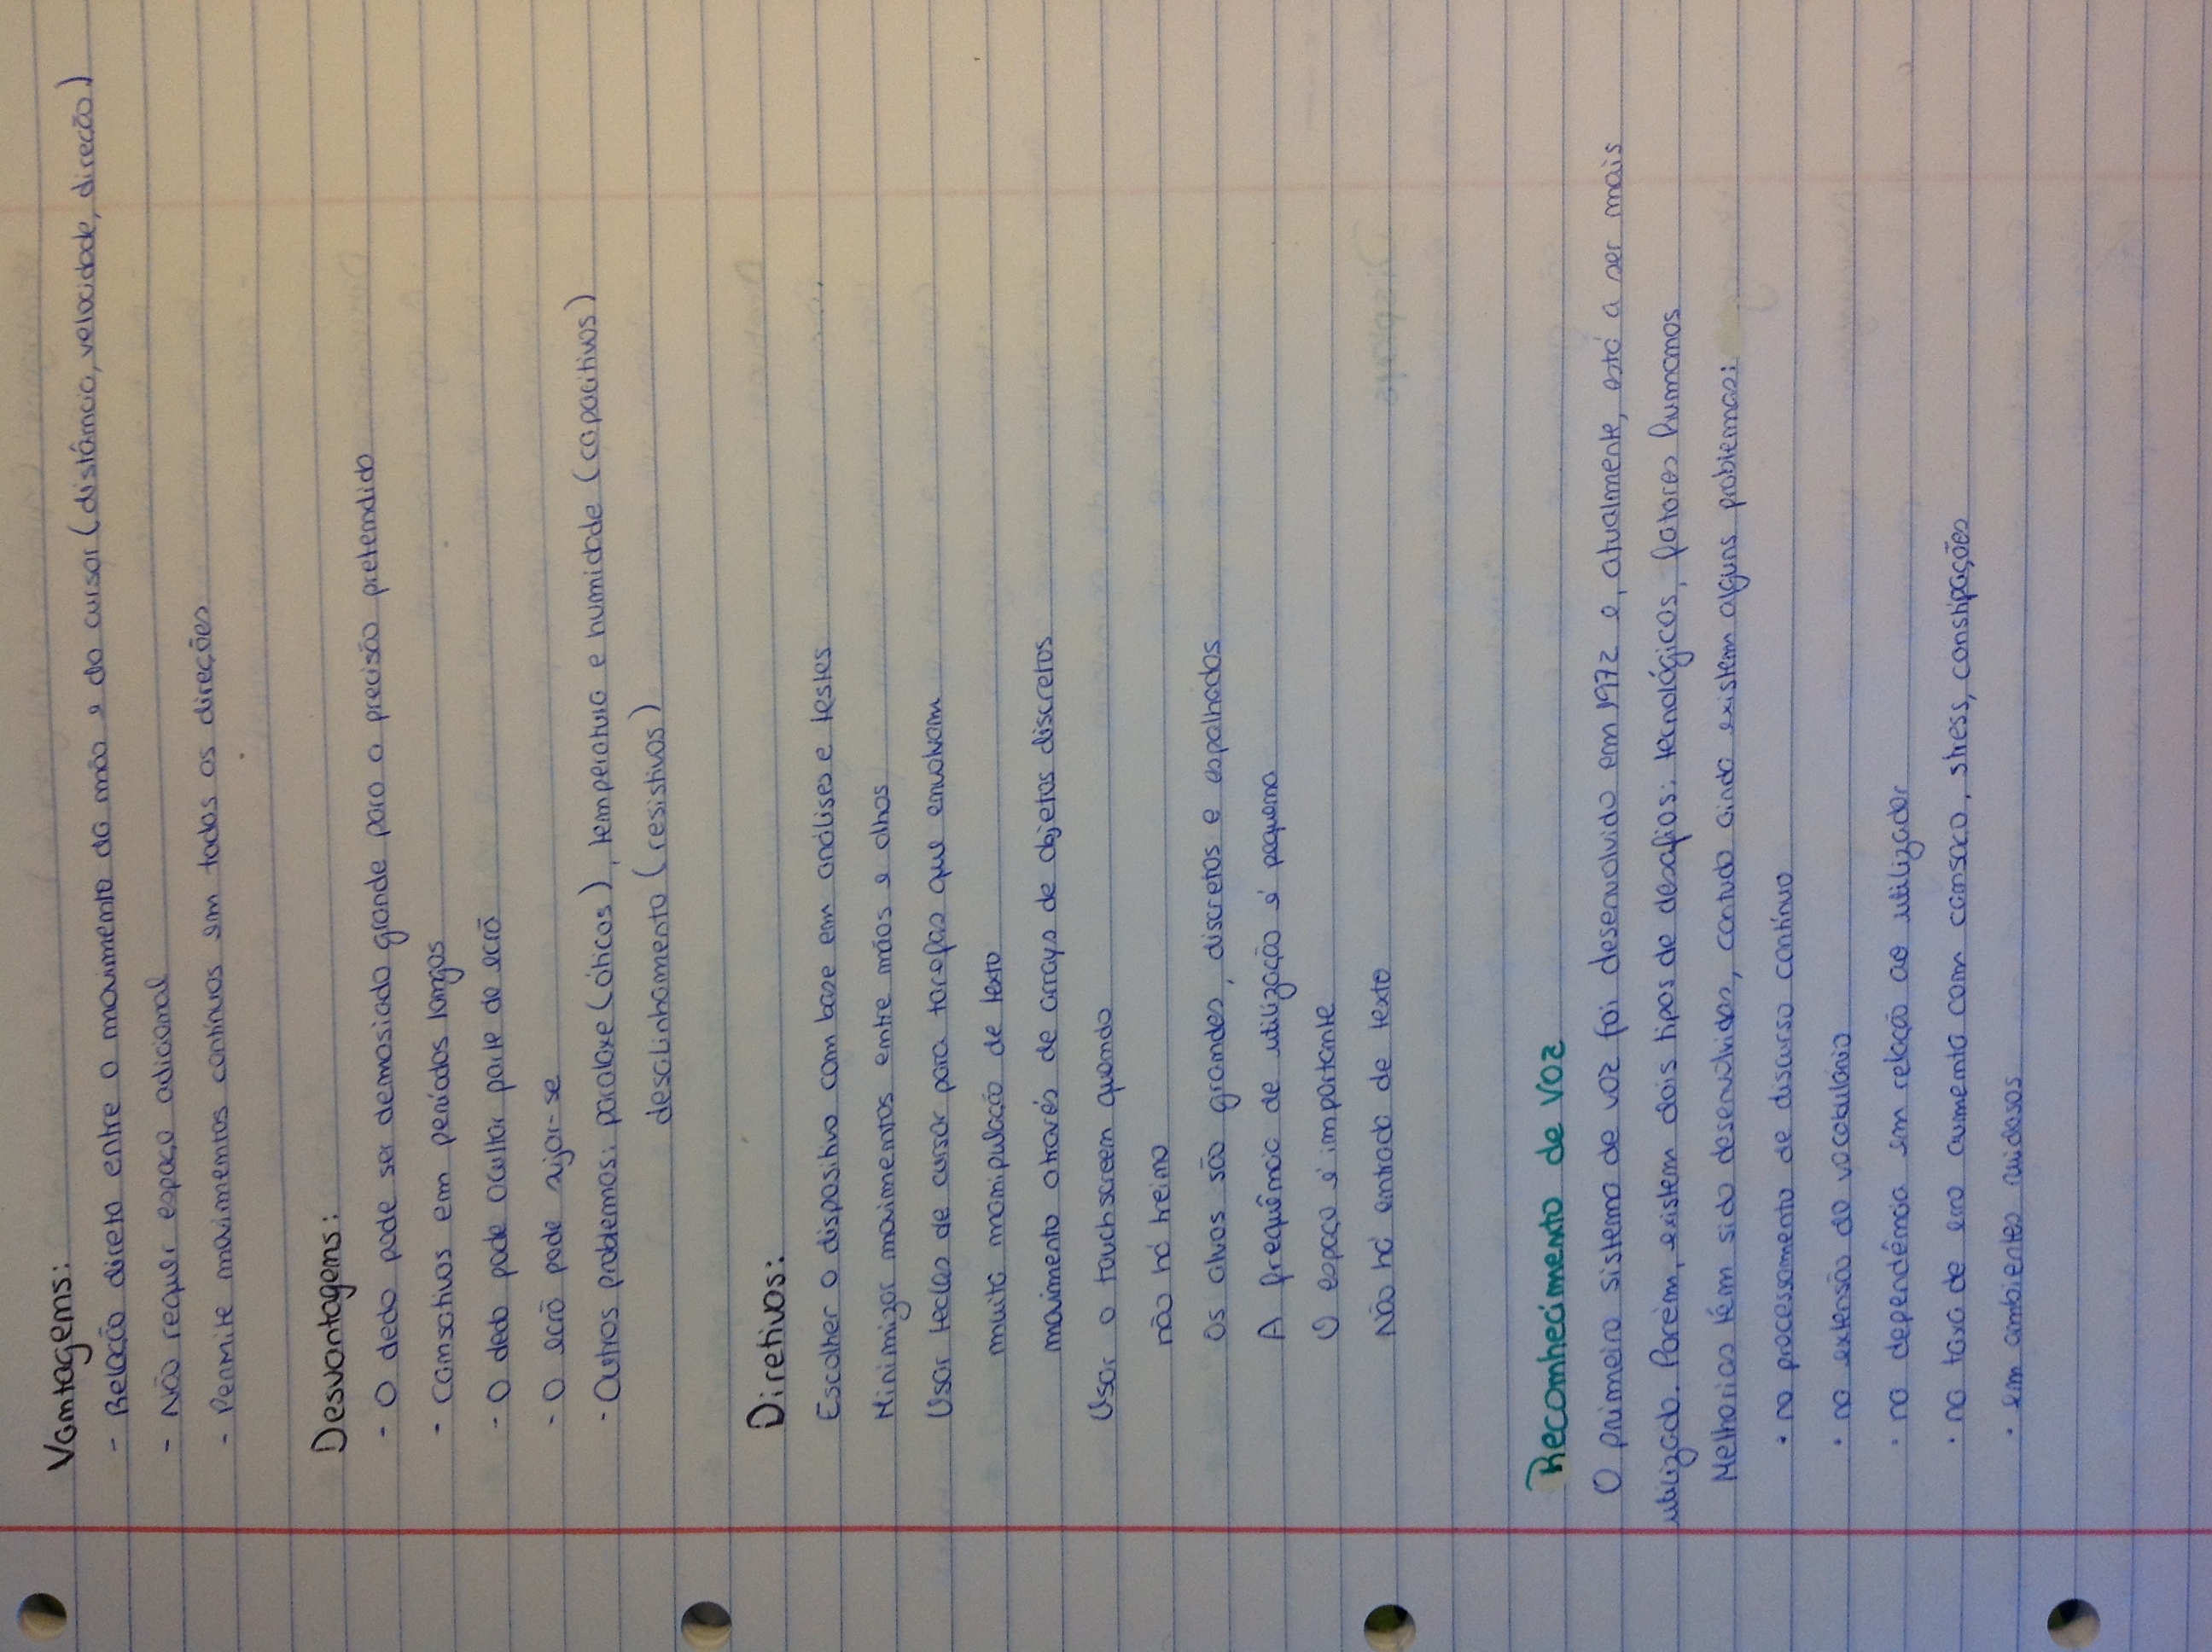 Vantagens:
- Relação direta entre o movimento da mão e do cursor (distância, velocidade, direção)
- Não requer espaço adicional
- Permite movimentos contínuos em todas as direções
Desvantagens:
- O dedo pode ser demasiado grande para a precisão pretendida
- Cansativos em períodos longos
- O dedo pode ocultar parte do ecrã
- O ecrã pode sujar-se
- Outros problemas: paralaxe (óticos), temperatura e humidade (capacitivos)
desalinhamento (resistivos)
Diretivas:
Escolher o dispositivo com base em análises e testes
Minimizar movimentos entre mãos e olhos
Usar teclas de cursor para tarefas que envolvam
muita manipulação de texto
movimento através de arrays de objetos discretos
Usar o touchscreen quando
não há treino
Os alvos são grandes, discretos e espalhados
A frequência de utilização é pequena
O espaço é importante
Não há entrada de texto
Reconhecimento de voz
O primeiro sistema de voz foi desenvolvido em 1972 e, atualmente, está a ser mais
utilizado. Porém, existem dois tipos de desafios: tecnológicos, fatores humanos
Melhorias têm sido desenvolvidas, contudo ainda existem alguns problemas:
• no processamento de discurso contínuo
• na extensão do vocabulário
• na dependência em relação ao utilizador
• na taxa de erro aumenta com cansaço, stress, constipações
• em ambientes ruidosos